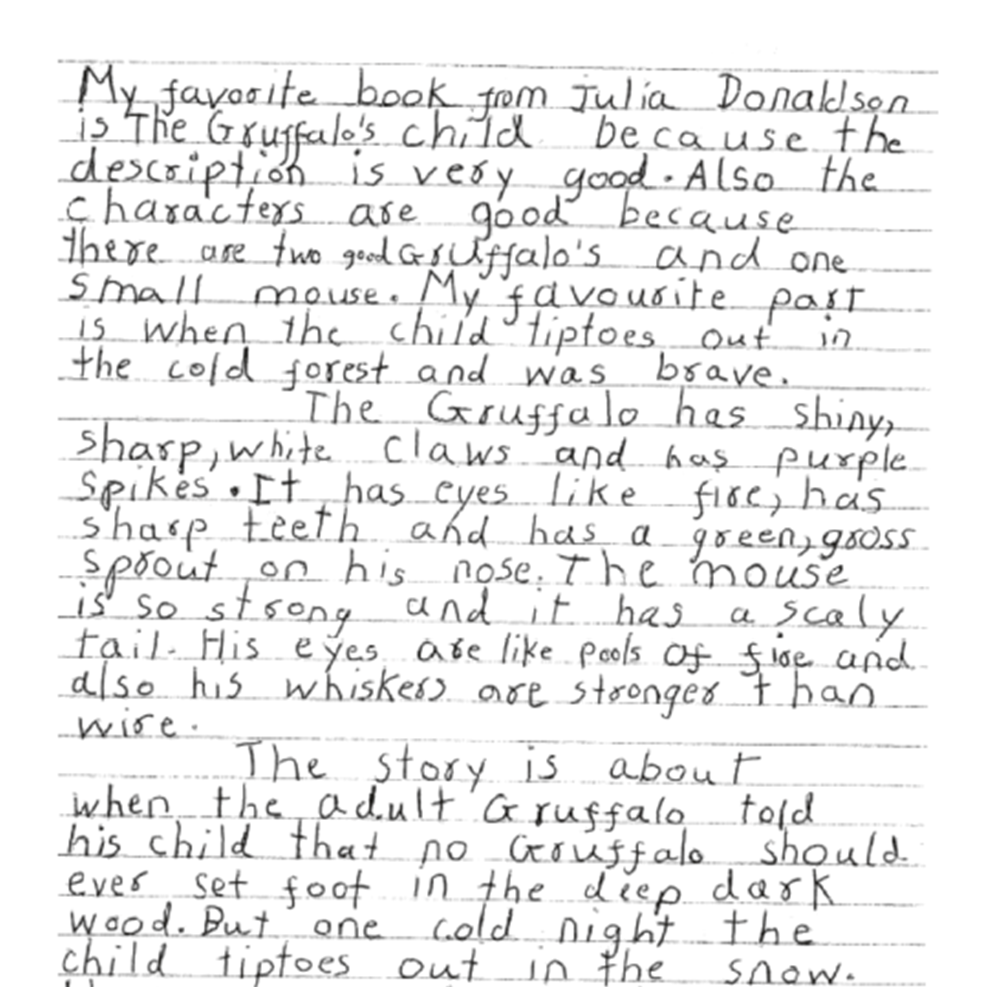 My favorite book from Julia Donaldson
is The Gruffalo's child because the
description is very good. Also the
characters are good because
there are two good Gruffalo's and one
small mouse. My favourite part
is when the child tiptoes out in
the cold forest and was brave.
The Gruffalo has shiny,
sharp, white claws and has purple
spikes. It has eyes like fire, has
sharp teeth and has a green, gross
sprout on his nose. The mouse
is so strong and it has a scaly
tail. His eyes are like pools of fire and
also his whiskers are stronger than
wire.
The story is about
when the adult Gruffalo told
his child that no Gruffalo should
ever set foot in the deep dark
wood. But one cold night the
child tiptoes out in the snow.